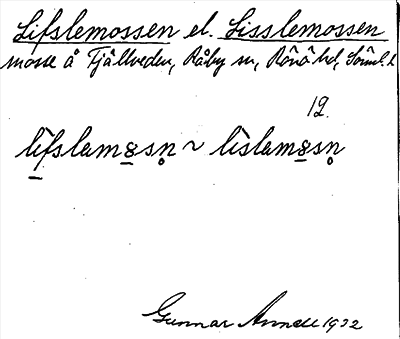 Lifslemossen el. Lisslemossen
mosse å Fjällveden, Råby sn, Rönö hd, Söml. l.
12.
lìfslamɵsn̥ ~ lìslamɵsn̥
Gunnar Arnell 1932